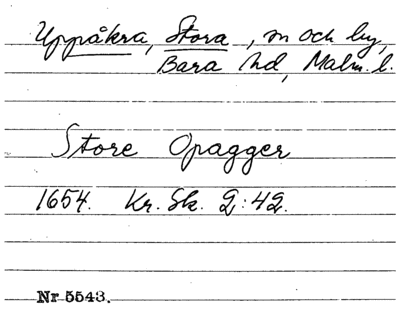 Uppåkra, Stora, sn och by,
Bara hd, Malm. l.
Store Opagger
1654. Kr. Sk. 2:42.
Nr 5543.